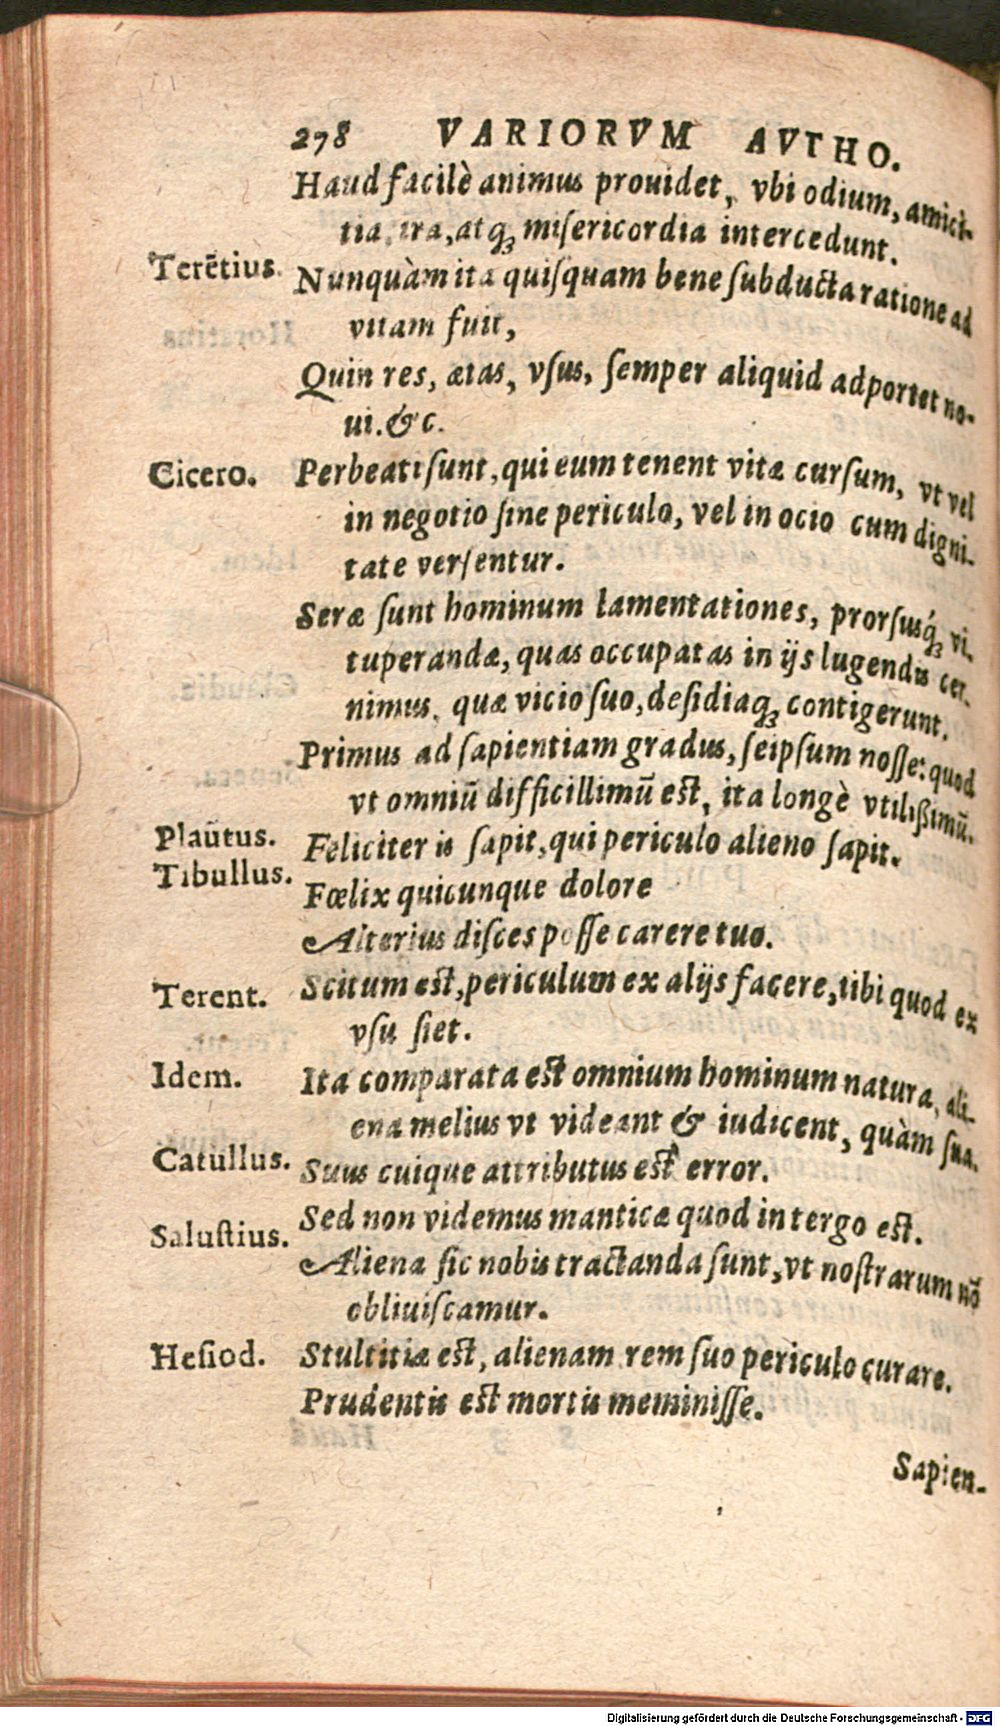 278 VARIORVM AVTHO.
Haud facilè animus prouidet, vbi odium, amici-
tia, ira, atq; misericordia intercedunt.
Terẽtius. Nunquàm ita quisquam bene subducta ratione ad
vitam fuit,
Quin res, ætas, vsus, semper aliquid adportet no-
ui. &c.
Cicero. Perbeati sunt, qui eum tenent vitæ cursum, vt vel
in negotio sine periculo, vel in ocio cum digni-
tate versentur.
Seræ sunt hominum lamentationes, prorsusq́; vi-
tuperandæ, quas occupatas in ijs lugendis cer-
nimus, quæ vicio suo, desidiaq; contigerunt.
Primus ad sapientiam gradus, seipsum nosse: quod
vt omniũ difficillimũ est, ita longè vtilißimũ.
Plautus. Feliciter is sapit, qui periculo alieno sapit.
Tibullus. Fœlix quicunque dolore
Alterius disces posse carere tuo.
Terent. Scitum est, periculum ex alijs facere, tibi quod ex
vsu siet.
Idem. Ita comparata est omnium hominum natura, ali-
ena melius vt videant & iudicent, quàm sua.
Catullus. Suus cuique attributus est error.
Sed non videmus manticæ quod in tergo est.
Salustius. Aliena sic nobis tractanda sunt, vt nostrarum nõ
obliuiscamur.
Hesiod. Stultitiæ est, alienam rem suo periculo curare.
Prudentis est mortis meminisse.
Sapien-
Digitalisierung gefördert durch die Deutsche Forschungsgemeinschaft - DFG